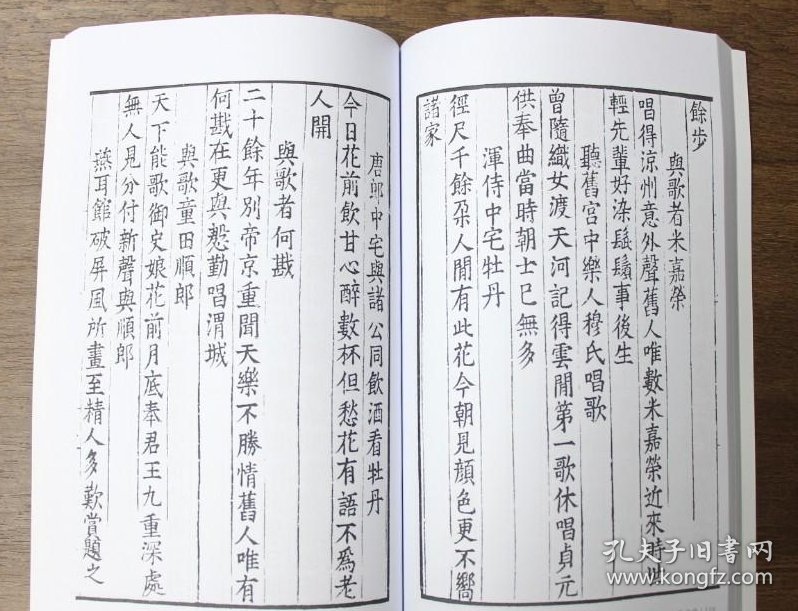 餘步
與歌者米嘉榮
唱得涼州意外聲舊人唯數米嘉榮近來時世
輕先輩好染髭鬚事後生
聽舊宮中樂人穆氏唱歌
曾隨織女渡天河記得雲閒第一歌休唱貞元
供奉曲當時朝士已無多
渾侍中宅牡丹
徑尺千餘朶人閒有此花今朝見顏色更不嚮
諸家
唐郎中宅與諸公同飲酒看牡丹
今日花前飲甘心醉數杯但愁花有語不爲老
人開
與歌者何戡
二十餘年別帝京重聞天樂不勝情舊人唯有
何戡在更與慇勤唱渭城
與歌童田順郎
天下能歌御史娘花前月底奉君王九重深處
無人見分付新聲與順郎
燕耳館破屏風所畫至精人多歎賞題之
孔夫子旧书网
www.kongfz.com